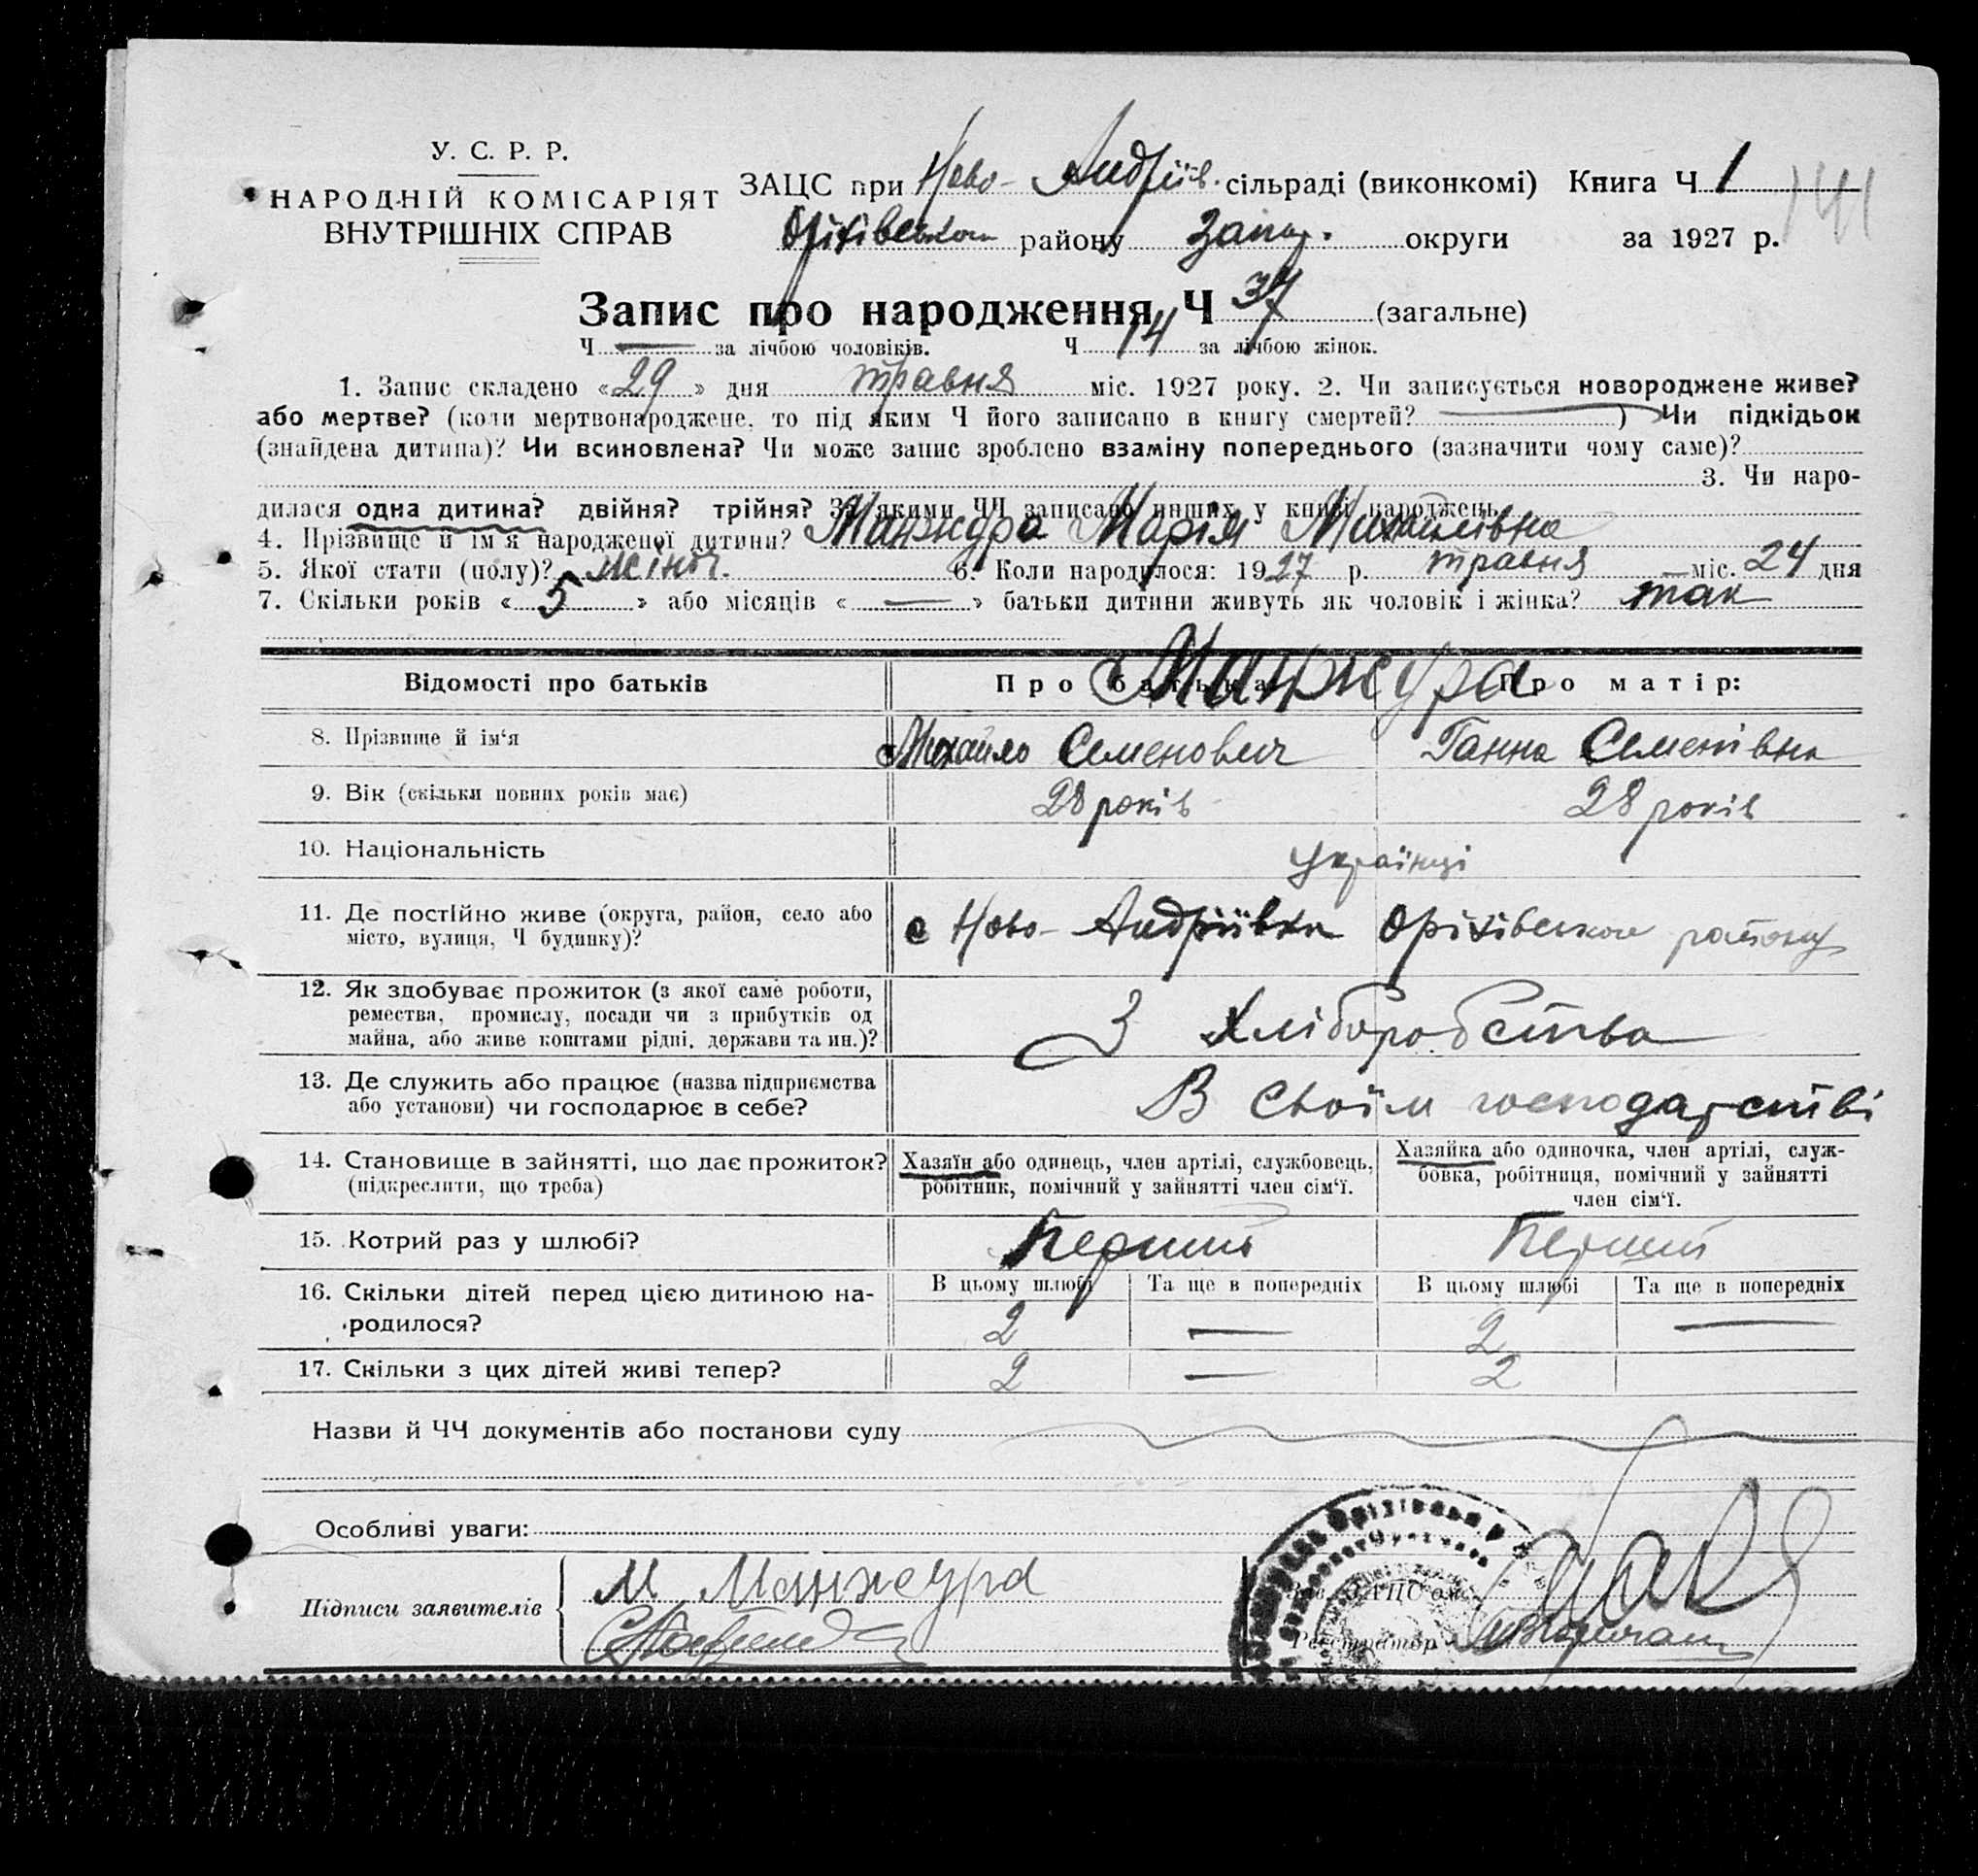 У. С. Р. Р.
НАРОДНІЙ КОМІСАРІЯТ
ВНУТРІШНІХ СПРАВ
ЗАЦС при Ново-Андріїв. сільраді (виконкомі) Книга Ч 1
141
Оріхівського району Запор. округи за 1927 р.
Запис про народження Ч 37 (загальне)
Ч — за лічбою чоловіків. Ч 14 за лічбою жінок.
1. Запис складено «29» дня травня міс. 1927 року. 2. Чи записується новороджене живе?
або мертве? (коли мертвонароджене, то під яким Ч його записано в книгу смертей? —) Чи підкідьок
(знайдена дитина)? Чи всиновлена? Чи може запис зроблено взаміну попереднього (зазначити чому саме)?
3. Чи наро-
дилася одна дитина? двійня? трійня? За якими ЧЧ записано инших у книзі народжень
4. Прізвище й ім'я народженої дитини? Манжура Марія Михайлівна
5. Якої стати (полу)? жіноч. 6. Коли народилося: 1927 р. травня міс. 24 дня
7. Скільки років «5» або місяців «—» батьки дитини живуть як чоловік і жінка? так
Відомості про батьків Про батька: Про матір:
Манжура
8. Прізвище й ім'я Михайло Семенович Ганна Семенівна
9. Вік (скільки повних років має) 28 років 28 років
10. Національність українці
11. Де постійно живе (округа, район, село або
місто, вулиця, Ч будинку)? с Ново-Андріївка Оріхівського району
12. Як здобуває прожиток (з якої саме роботи,
ремества, промислу, посади чи з прибутків од
майна, або живе коштами рідні, держави та ин.)? З Хліборобства
13. Де служить або працює (назва підприємства
або установи) чи господарює в себе? В своїм господарстві
14. Становище в зайнятті, що дає прожиток?
(підкреслити, що треба)
Хазяїн або одинець, член артілі, службовець,
робітник, помічний у зайнятті член сім'ї.
Хазяйка або одиночка, член артілі, служ-
бовка, робітниця, помічний у зайнятті
член сім'ї.
15. Котрий раз у шлюбі? Перший Перший
В цьому шлюбі Та ще в попередніх В цьому шлюбі Та ще в попередніх
16. Скільки дітей перед цією дитиною на-
родилося? 2 — 2 —
17. Скільки з цих дітей живі тепер? 2 — 2
Назви й ЧЧ документів або постанови суду
Особливі уваги:
Підписи заявителів М Манжура
Зав. ЗАЦС'ом
Реєстратор